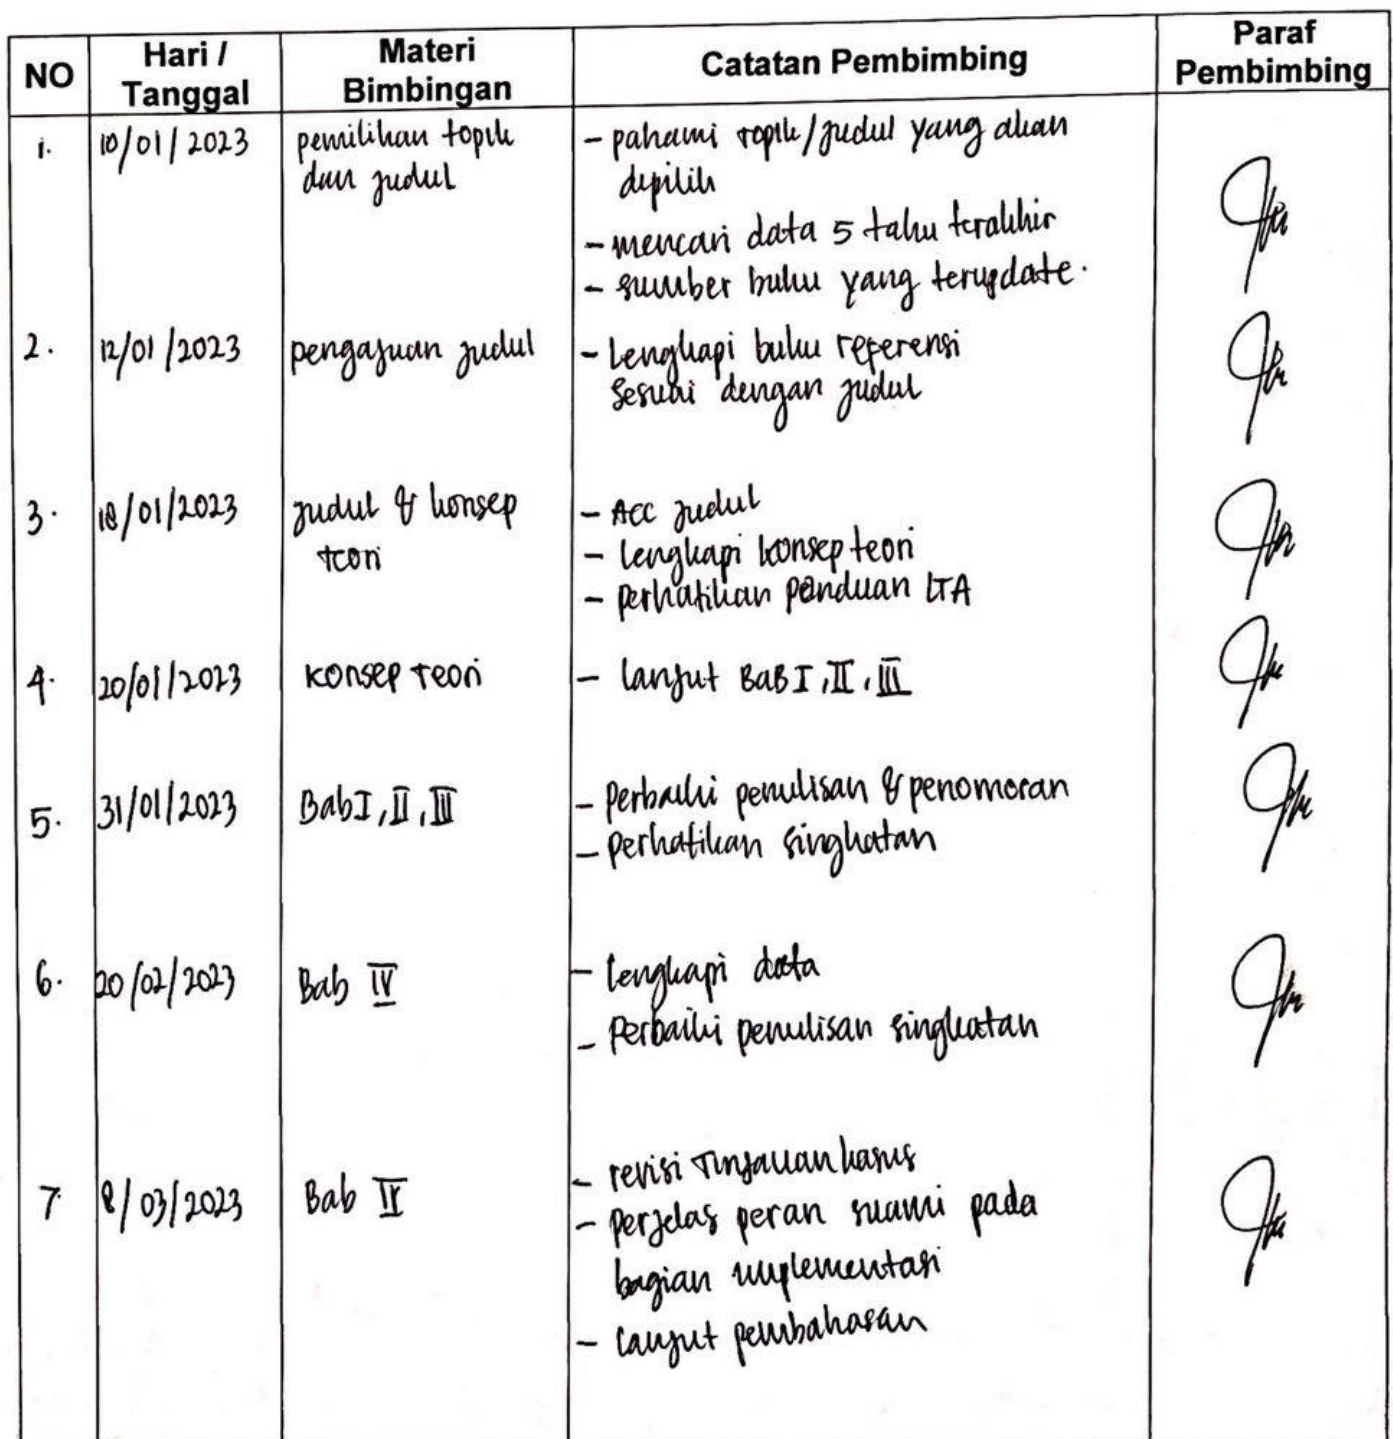 NO
Hari /
Tanggal
Materi
Bimbingan
Catatan Pembimbing
Paraf
Pembimbing
1.
10/01/2023
pemilihan topik
dan judul
- pahami topik/judul yang akan
dipilih
- mencari data 5 tahu terakhir
- sumber buku yang terupdate.
2.
12/01/2023
pengajuan judul
- Lengkapi buku referensi
sesuai dengan judul
3.
18/01/2023
judul & konsep
teori
- ACC judul
- lengkapi konsep teori
- perhatikan panduan LTA
4.
20/01/2023
konsep teori
- lanjut BAB I, II, III
5.
31/01/2023
Bab I, II, III
- Perbaiki penulisan & penomoran
- perhatikan singkatan
6.
20/02/2023
Bab IV
- lengkapi data
- Perbaiki penulisan singkatan
7.
8/03/2023
Bab IV
- revisi Tinjauan kasus
- perjelas peran suami pada
bagian implementasi
- lanjut pembahasan